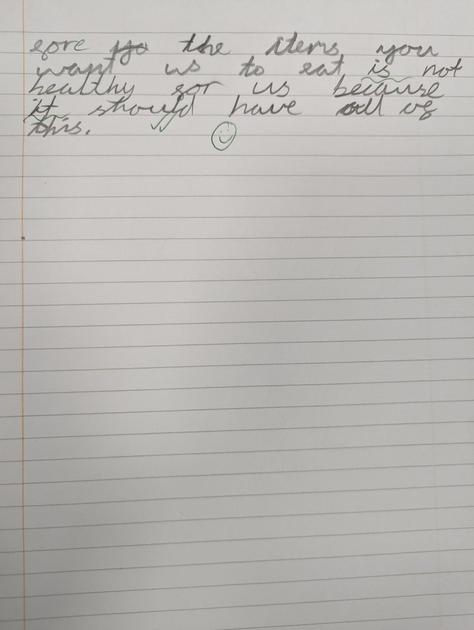 fore the items you
want us to eat is not
healthy for us because
it should have all of
this.